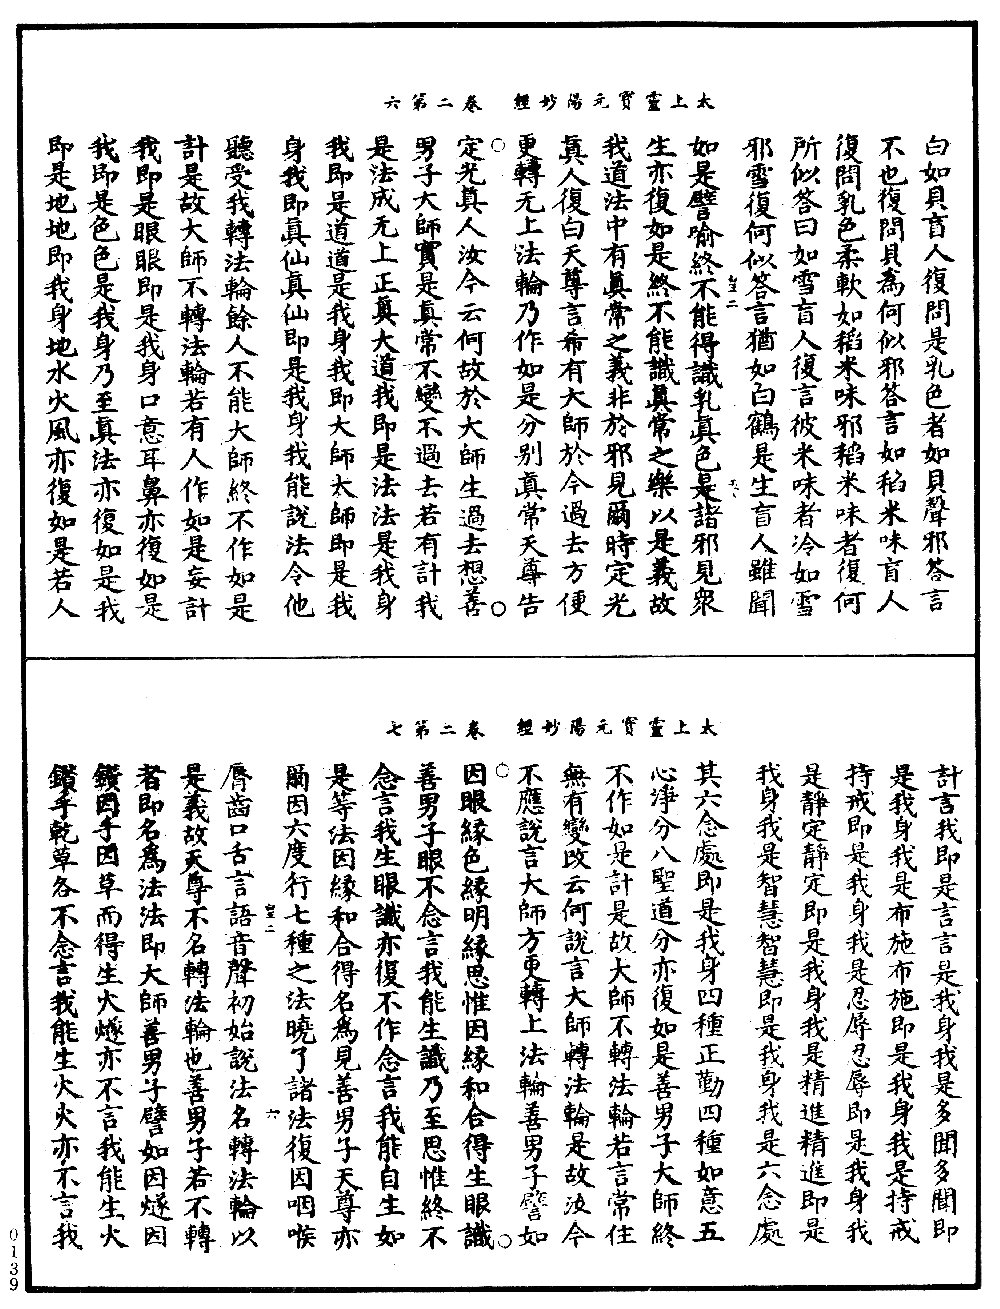 太上靈寶元陽妙經　卷二第六
白如貝盲人復問是乳色者如貝聲邪答言
不也復問貝為何似邪答言如稻米味盲人
復問乳色柔軟如稻米味邪稻米味者復何
所似答曰如雪盲人復言彼米味者冷如雪
邪雪復何似答言猶如白鶴是生盲人雖聞
如是譬喻終不能得識乳真色是諸邪見眾
生亦復如是終不能識真常之樂以是義故
我道法中有真常之義非於邪見爾時定光
真人復白天尊言希有大師於今過去方便
更轉无上法輪乃作如是分別真常天尊告
定光真人汝今云何故於大師生過去想善
男子大師實是真常不變不過去若有計我
是法成无上正真大道我即是法法是我身
我即是道道是我身我即大師太師即是我
身我即真仙真仙即是我身我能說法令他
聽受我轉法輪餘人不能大師終不作如是
計是故大師不轉法輪若有人作如是妄計
我即是眼眼即是我身口意耳鼻亦復如是
我即是色色是我身乃至真法亦復如是我
即是地地即我身地水火風亦復如是若人
太上靈寶元陽妙經　卷二第七
計言我即是言言是我身我是多聞多聞即
是我身我是布施布施即是我身我是持戒
持戒即是我身我是忍辱忍辱即是我身我
是靜定靜定即是我身我是精進精進即是
我身我是智慧智慧即是我身我是六念處
其六念處即是我身四種正勤四種如意五
心淨分八聖道分亦復如是善男子大師終
不作如是計是故大師不轉法輪若言常住
無有變改云何說言大師轉法輪是故汝今
不應說言大師方更轉上法輪善男子譬如
因眼緣色緣明緣思惟因緣和合得生眼識
善男子眼不念言我能生識乃至思惟終不
念言我生眼識亦復不作念言我能自生如
是等法因緣和合得名為見善男子天尊亦
爾因六度行七種之法曉了諸法復因咽喉
脣齒口舌言語音聲初始說法名轉法輪以
是義故天尊不名轉法輪也善男子若不轉
者即名為法法即大師善男子譬如因燧因
鑽因手因草而得生火燧亦不言我能生火
鑽手乾草各不念言我能生火火亦不言我
0139